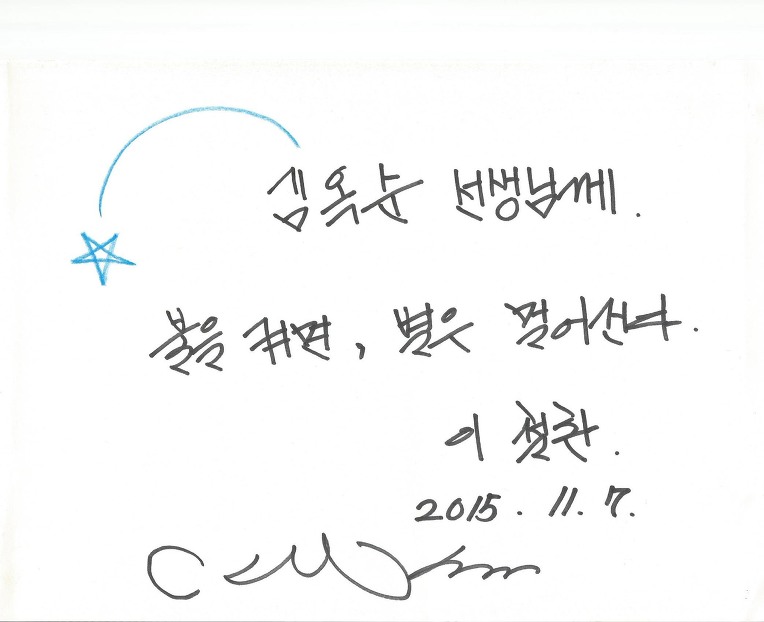 김옥순 선생님께.
불을 켜면, 별은 멀어진다.
이철환.
2015. 11. 7.